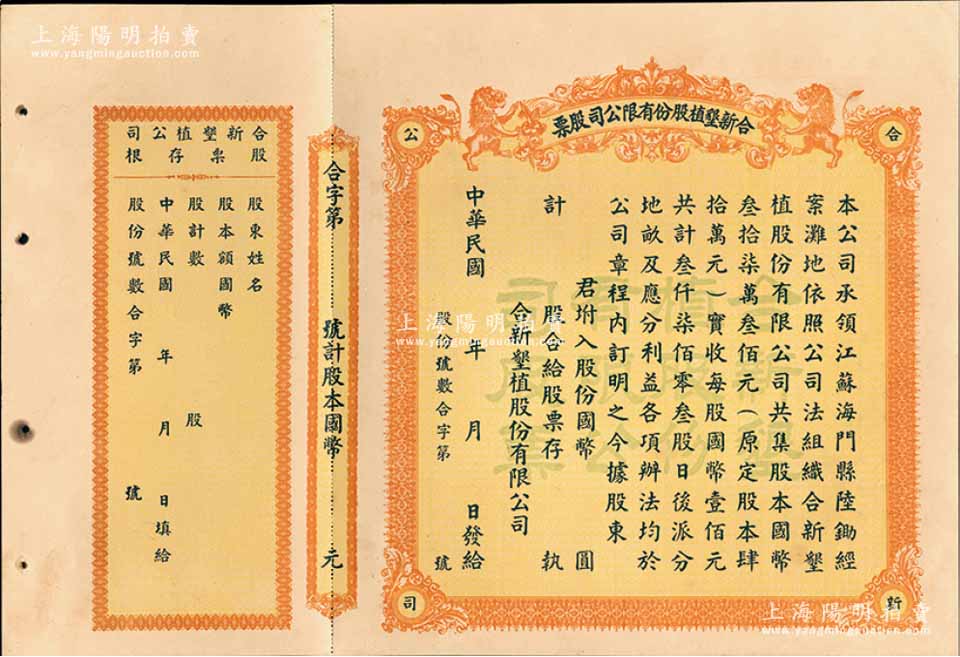 上海陽明拍賣
www.yangmingauction.com
合新墾植股份有限公司股票
合
新
公
司
本公司承領江蘇海門縣陸鋤經
案灘地依照公司法組織合新墾
植股份有限公司共集股本國幣
叁拾柒萬叁佰元（原定股本肆
拾萬元）實收每股國幣壹佰元
共計叁仟柒佰零叁股日後派分
地畝及應分利益各項辦法均於
公司章程內訂明之今據股東
君坿入股份國幣 圓
計 股合給股票存 執
合新墾植股份有限公司
中華民國 年 月 日發給
股份號數合字第 號
合新墾植
股份有限
公司股票
上海陽明拍賣
www.yangmingauction.com
合字第 號計股本國幣 元
合新墾植公司
股票存根
股東姓名
股本額國幣
股計數 股
中華民國 年 月 日填給
股份號數合字第 號
上海陽明拍賣
www.yangmingauction.com